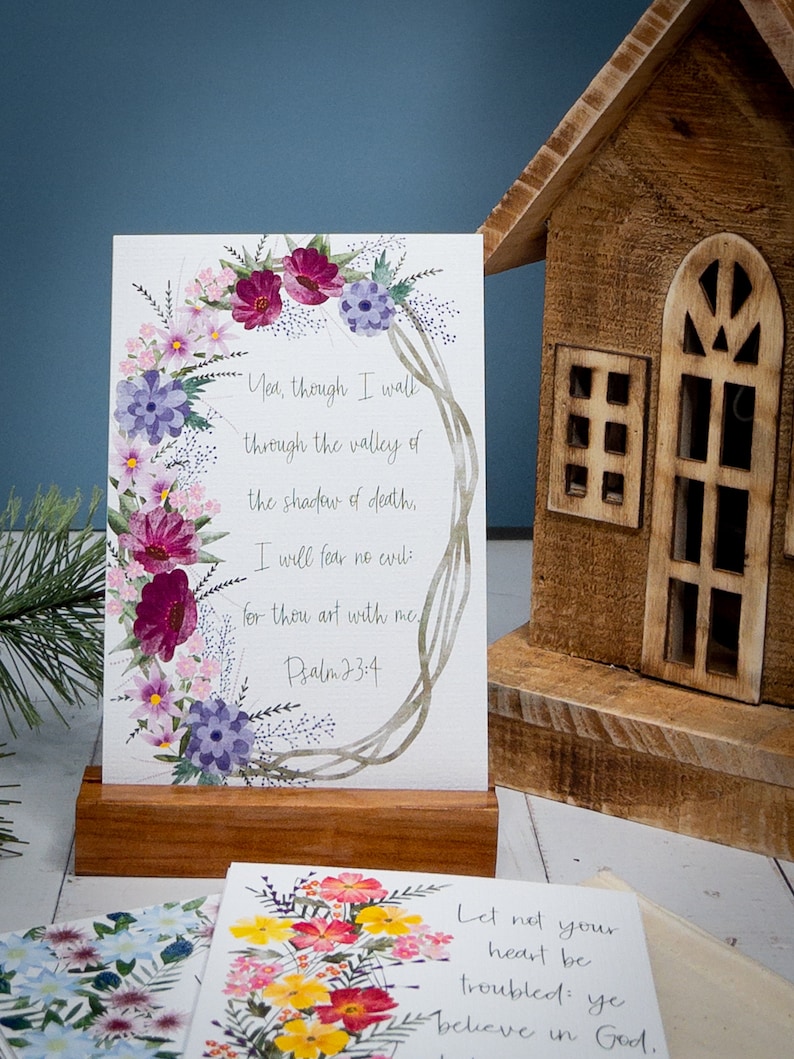 Yea, though I walk
through the valley of
the shadow of death,
I will fear no evil:
for thou art with me.
Psalm 23:4
Let not your
heart be
troubled: ye
believe in God,